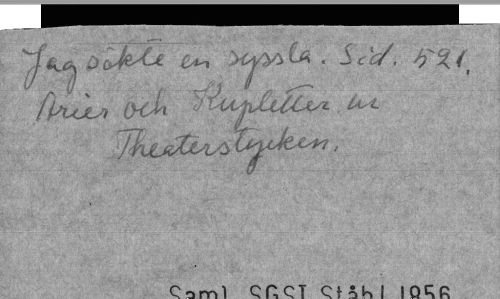 Jag sökte en syssla. Sid. 521.
Arier och Kupletter ur
Theaterstycken.
Saml. SGSI Ståhl 1856